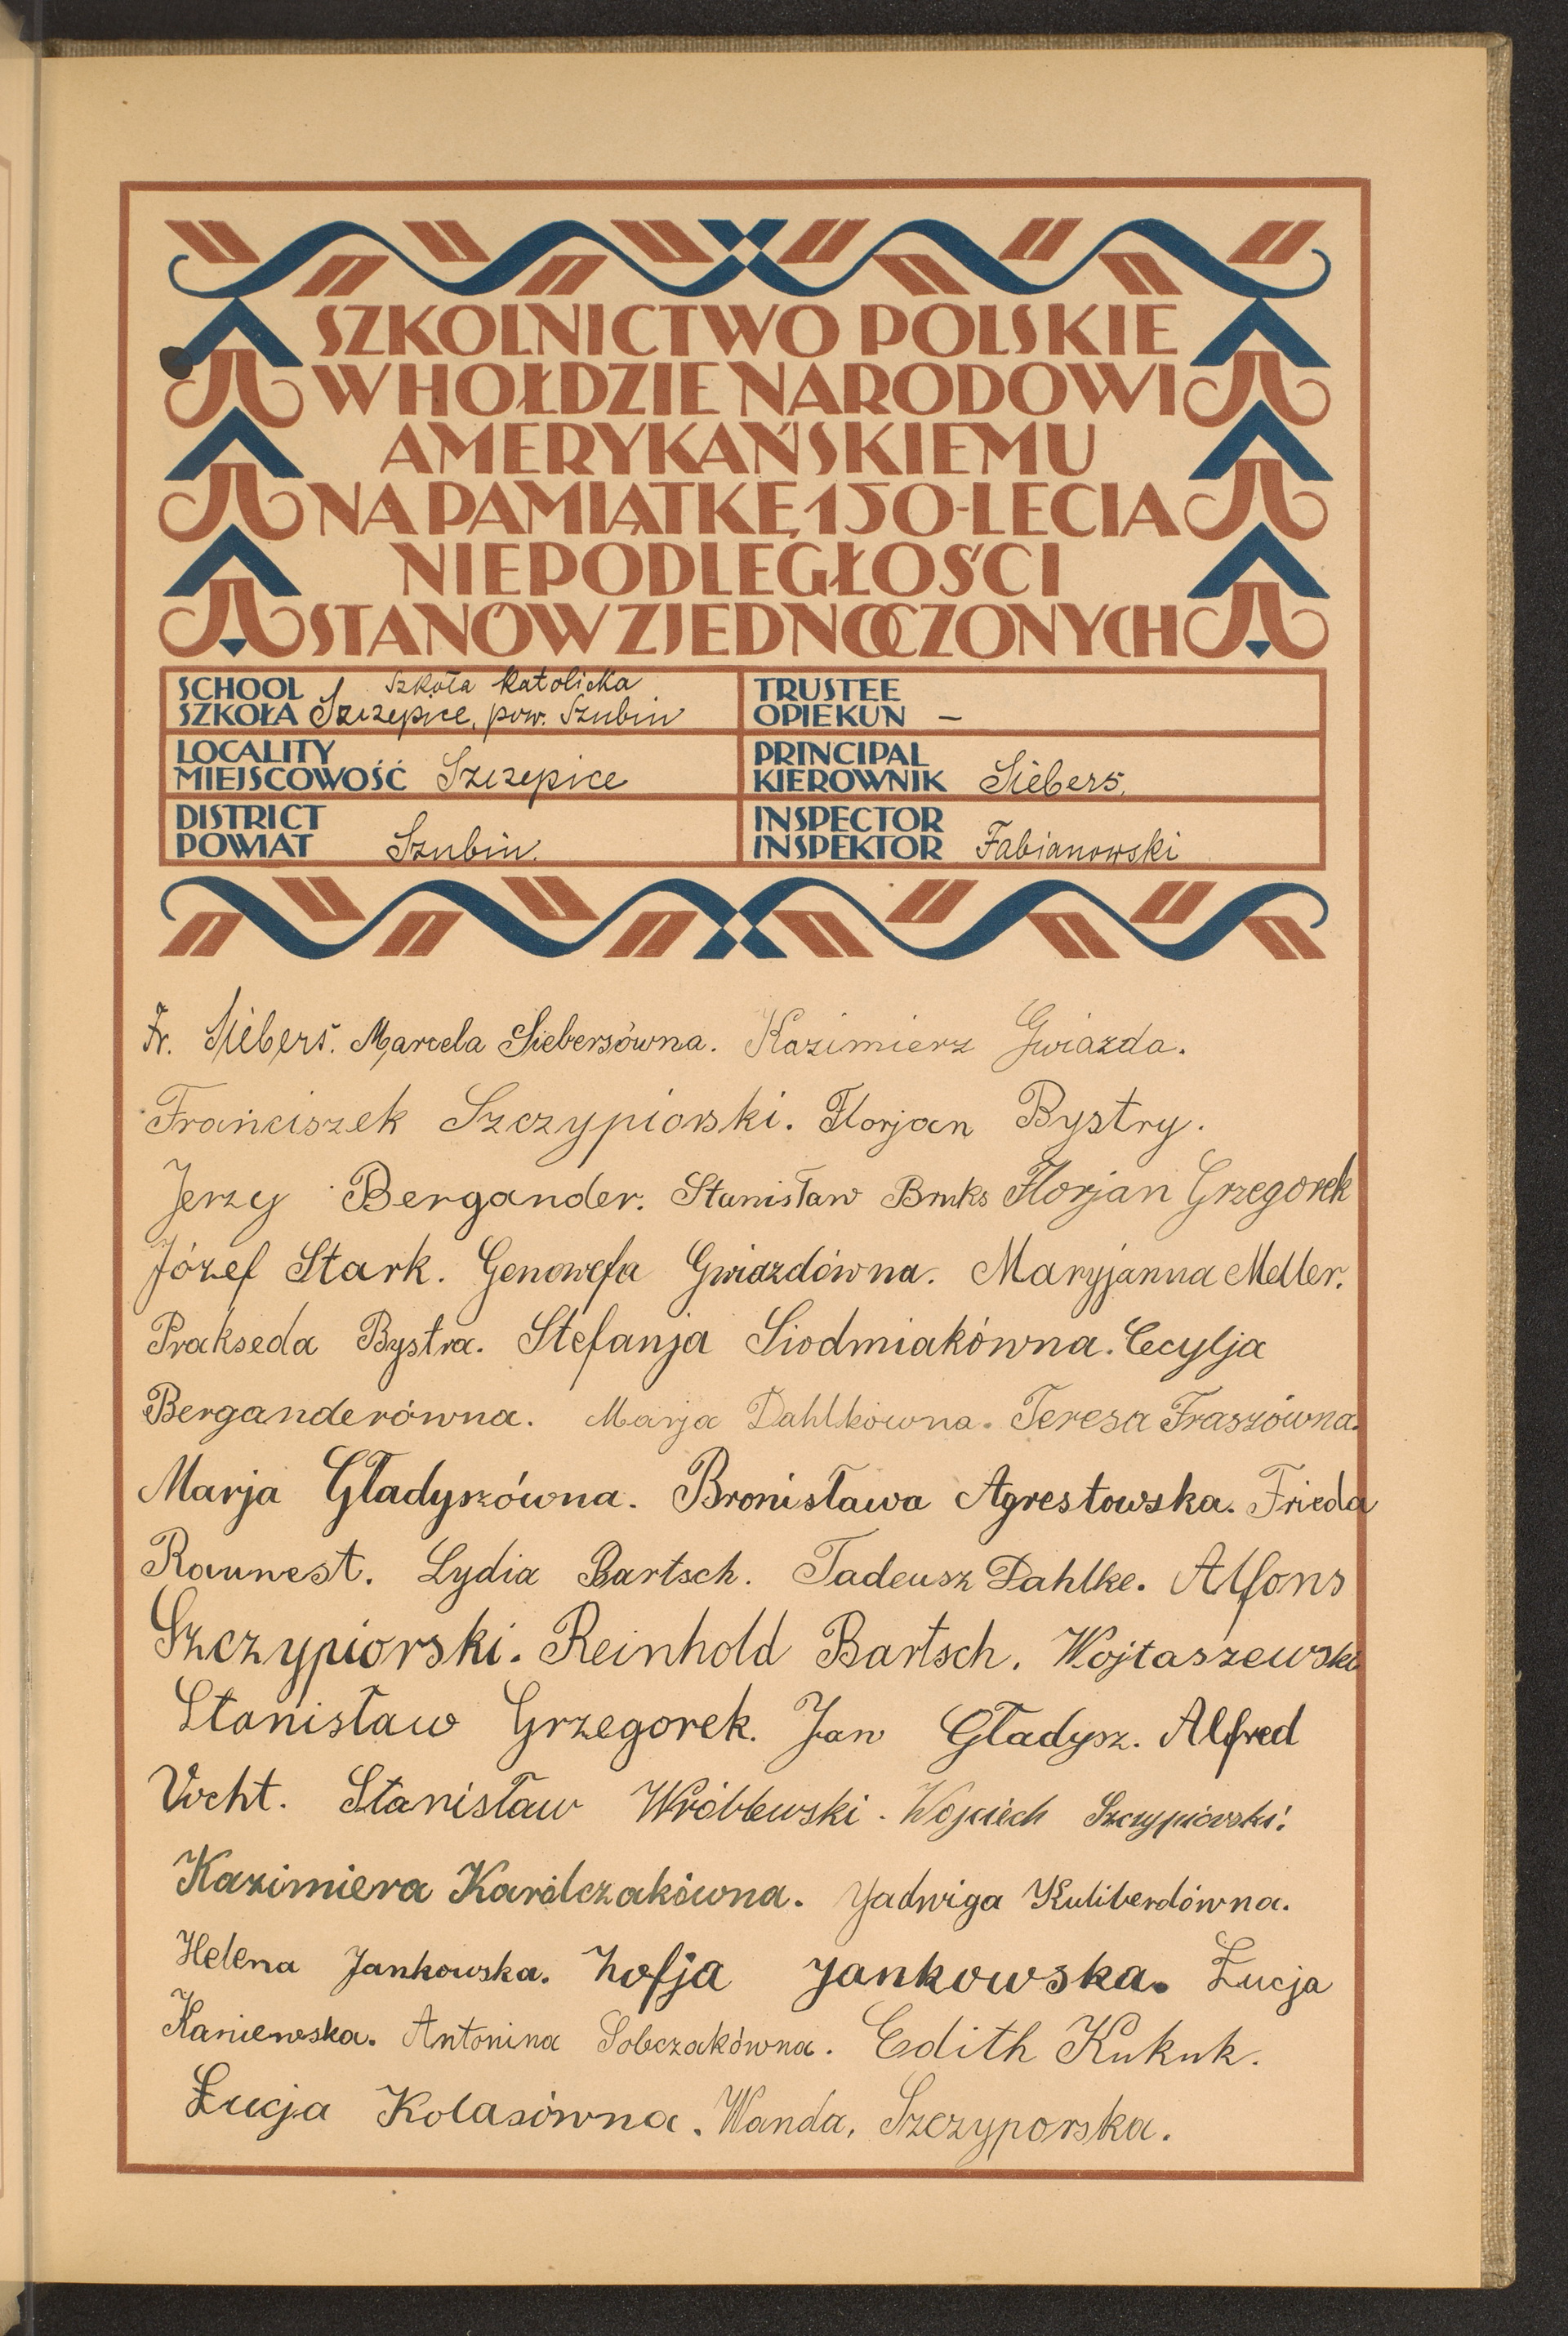 SZKOLNICTWO POLSKIE
W HOŁDZIE NARODOWI
AMERYKAŃSKIEMU
NA PAMIĄTKĘ 150-LECIA
NIEPODLEGŁOŚCI
STANÓW ZJEDNOCZONYCH
SCHOOL Szkoła Katolicka
SZKOŁA Szczepice, pow. Szubin
TRUSTEE
OPIEKUN –
LOCALITY
MIEJSCOWOŚĆ Szczepice
PRINCIPAL
KIEROWNIK Siebers,
DISTRICT
POWIAT Szubin.
INSPECTOR
INSPEKTOR Fabianowski
Fr. Siebers. Marcela Siebersówna. Kazimierz Gwiazda.
Franciszek Szczypiorski. Florjan Bystry.
Jerzy Bergander. Stanisław Bruks Florjan Grzegorek
Józef Stark. Genowefa Gwiazdówna. Maryjanna Meller.
Prakseda Bystra. Stefanja Siodmiakówna. Cecylja
Berganderówna. Marja Dahlkówna. Teresa Fraszówna.
Marja Gładyszówna. Bronisława Agrestowska. Frieda
Raunest. Lydia Bartsch. Tadeusz Dahlke. Alfons
Szczypiorski. Reinhold Bartsch. Wojtaszewski
Stanisław Grzegorek. Jan Gładysz. Alfred
Vocht. Stanisław Wróblewski. Wojciech Szczypiorski.
Kazimiera Karolczakówna. Jadwiga Kuliberdówna.
Helena Jankowska. Zofja Jankowska. Łucja
Kaniewska. Antonina Sobczakówna. Edith Kukuk.
Łucja Kolasówna. Wanda, Szczyporska.